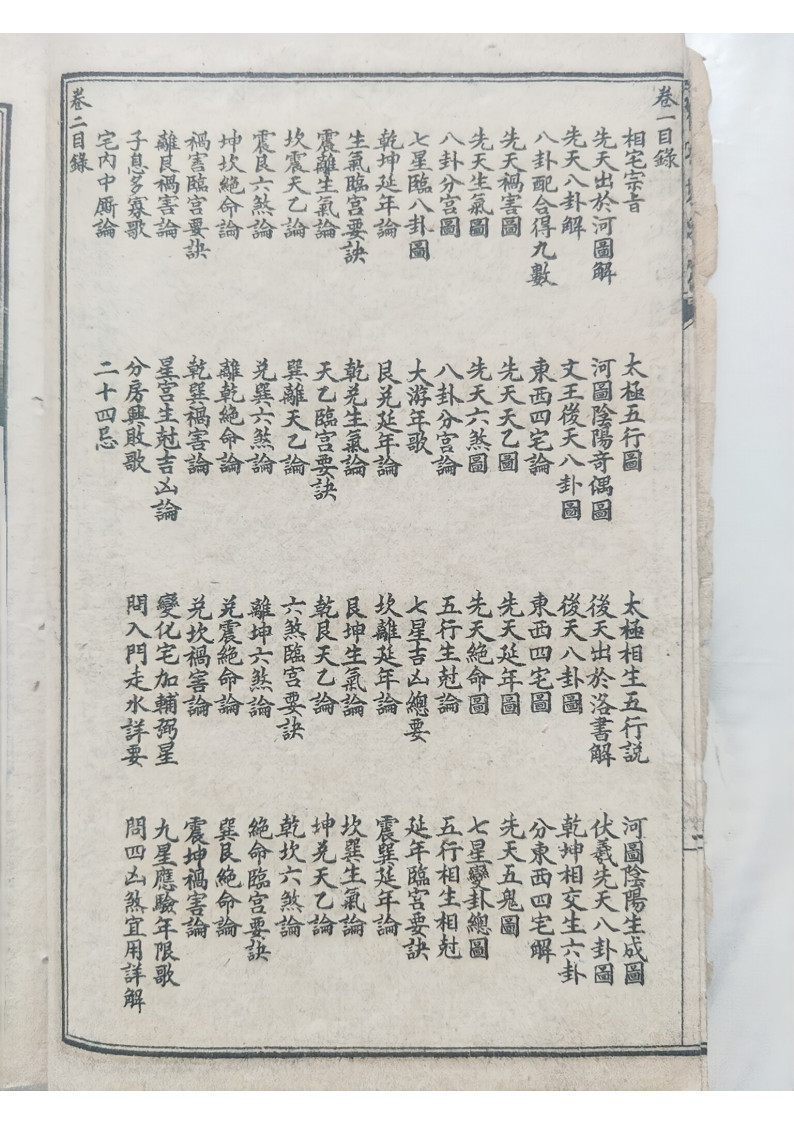 卷一目錄
相宅宗旨 太極五行圖 太極相生五行説 河圖陰陽生成圖
先天出於河圖解 河圖陰陽奇偶圖 後天出於洛書解 伏羲先天八卦圖
先天八卦解 文王後天八卦圖 後天八卦圖 乾坤相交生六卦
八卦配合得九數 東西四宅論 東西四宅圖 分東西四宅解
先天禍害圖 先天天乙圖 先天延年圖 先天五鬼圖
先天生氣圖 先天六煞圖 先天絕命圖 七星變卦總圖
八卦分宮圖 八卦分宮論 五行生尅論 五行相生相尅
七星臨八卦圖 大游年歌 七星吉凶總要 延年臨宮要訣
乾坤延年論 艮兌延年論 坎離延年論 震巽延年論
生氣臨宮要訣 乾兌生氣論 艮坤生氣論 坎巽生氣論
震離生氣論 天乙臨宮要訣 乾艮天乙論 坤兌天乙論
坎震天乙論 巽離天乙論 六煞臨宮要訣 乾坎六煞論
震艮六煞論 兌巽六煞論 離坤六煞論 絕命臨宮要訣
坤坎絕命論 離乾絕命論 兌震絕命論 巽艮絕命論
禍害臨宮要訣 乾巽禍害論 兌坎禍害論 震坤禍害論
離艮禍害論 星宮生尅吉凶論 變化宅加輔弼星 九星應驗年限歌
子息多寡歌 分房興敗歌 問入門走水詳要 問四凶煞宜用詳解
宅內中厮論 二十四忌
卷二目錄